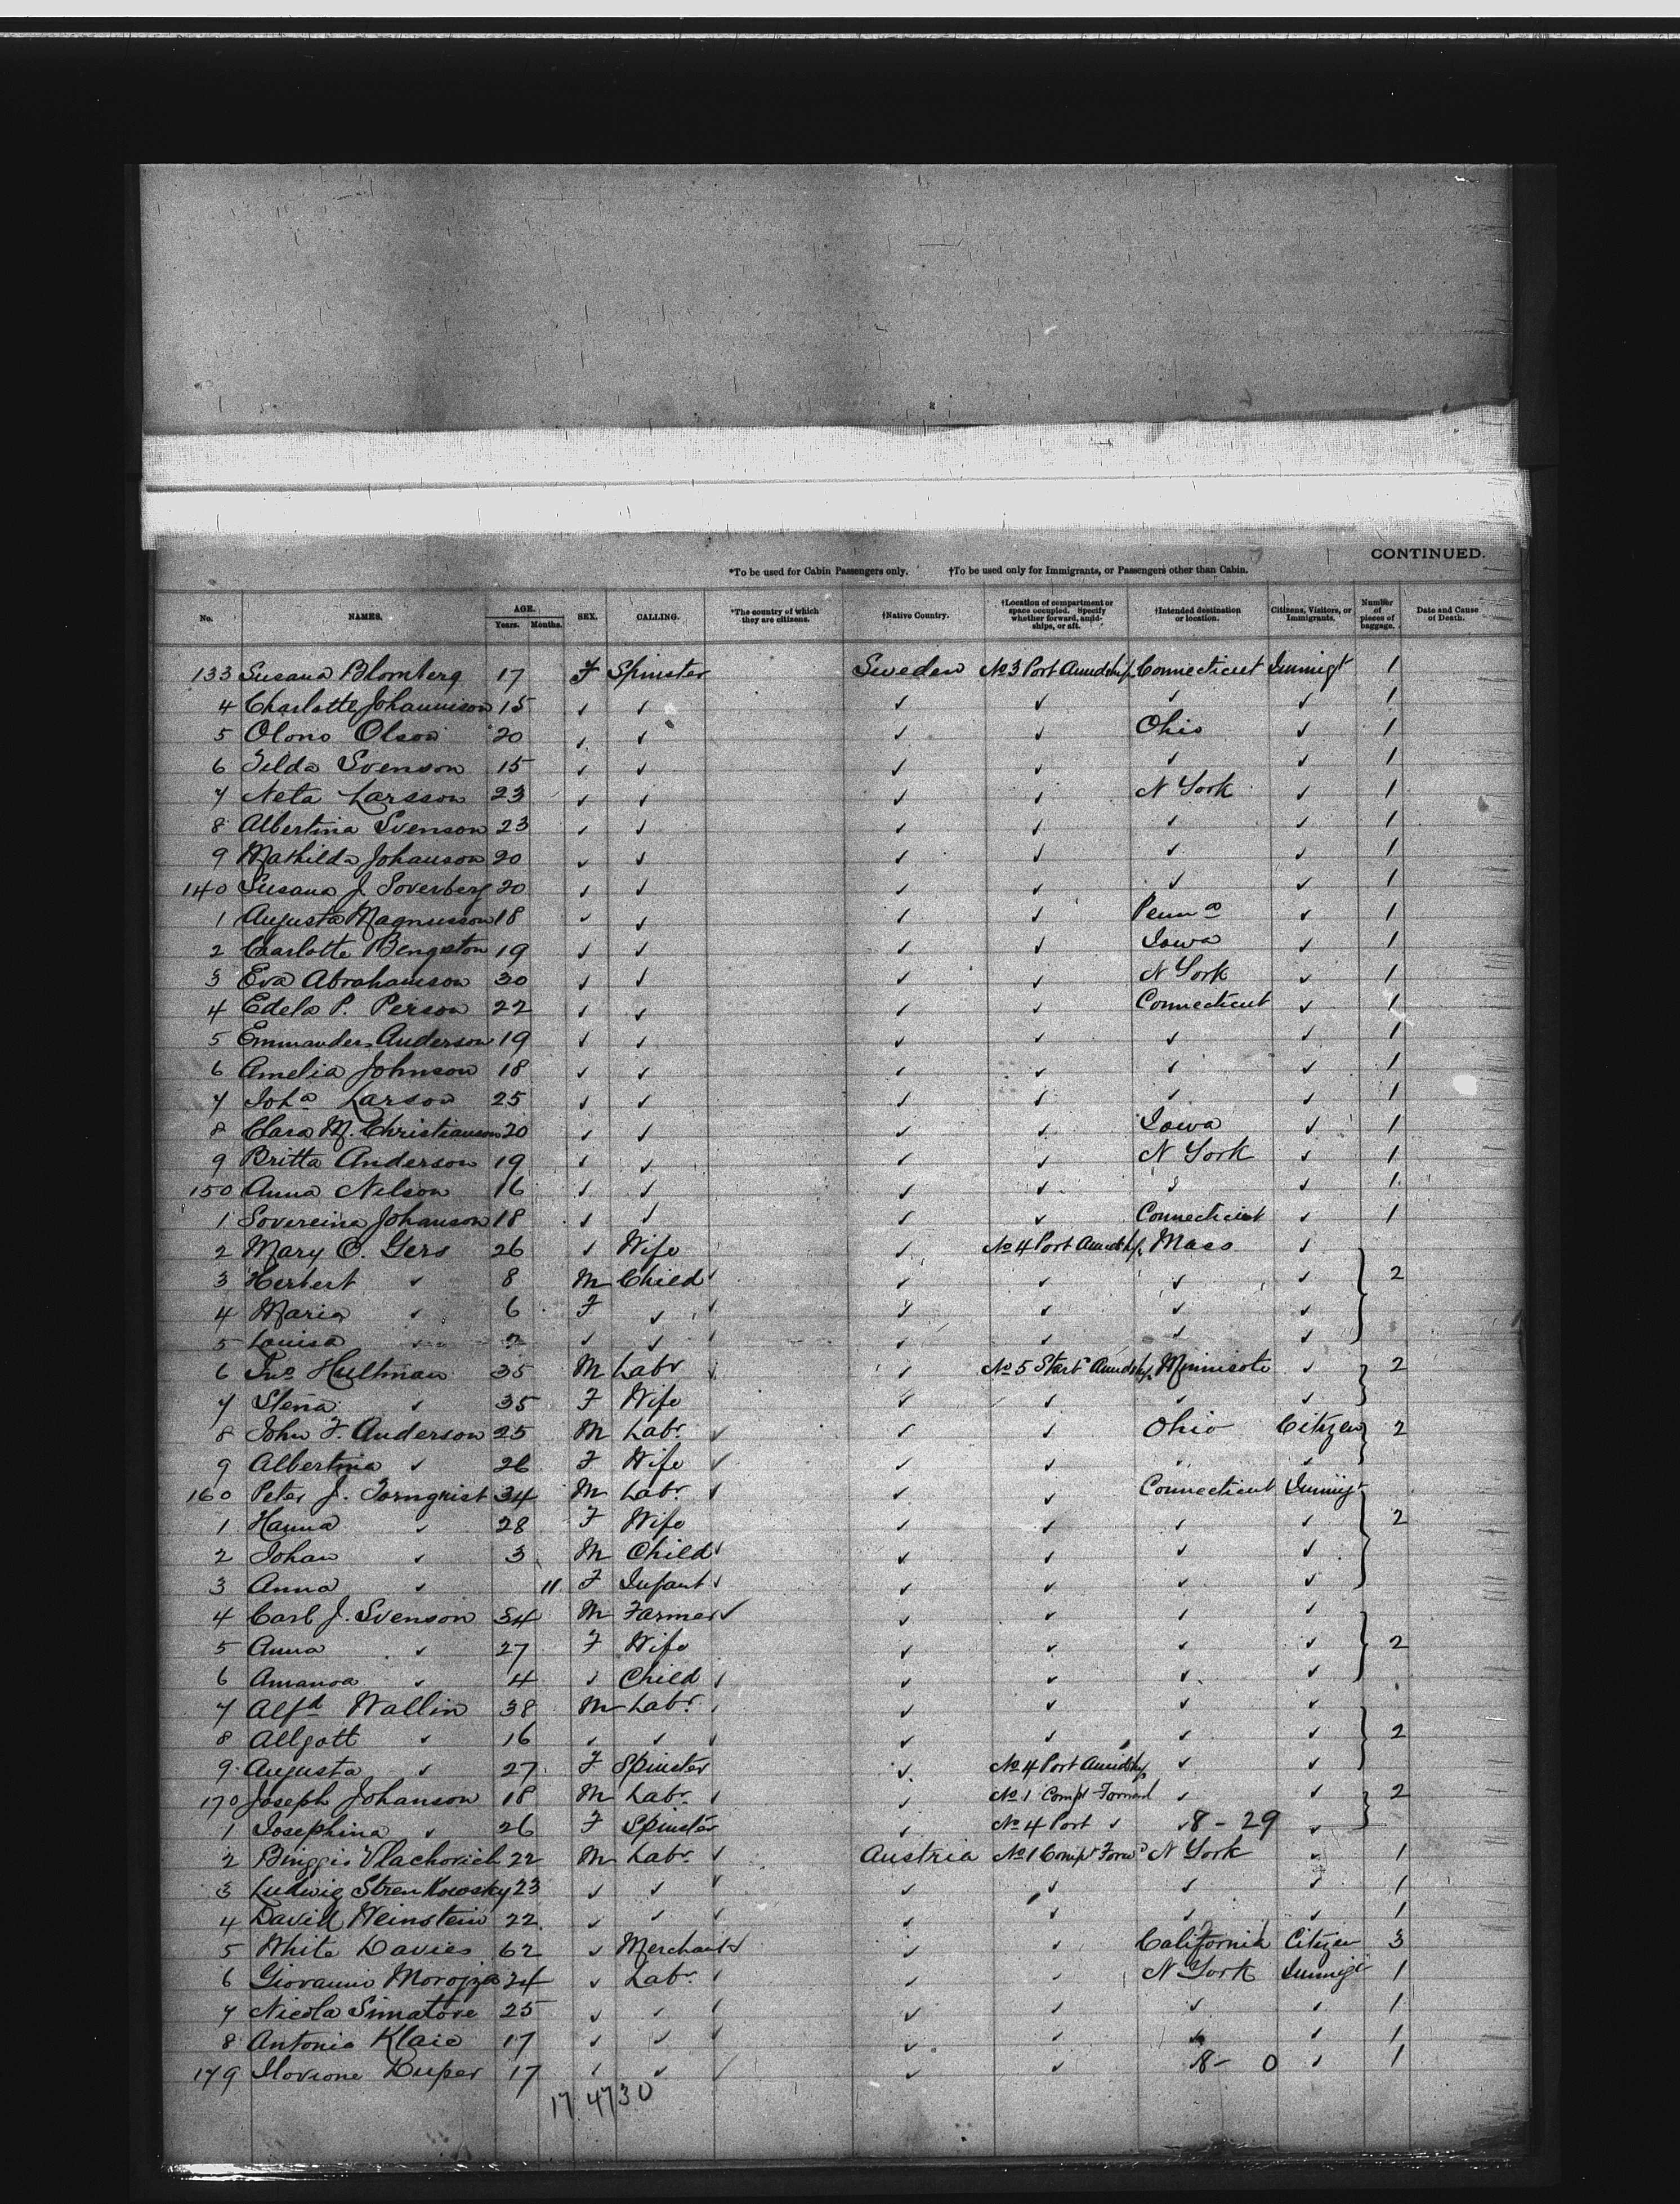 CONTINUED.
*To be used for Cabin Passengers only. †To be used only for Immigrants, or Passengers other than Cabin.
No. NAMES. AGE. Years. Months. SEX. CALLING. *The country of which they are citizens. †Native Country. †Location of compartment or space occupied. Specify whether forward, amidships, or aft. †Intended destination or location. Citizens, Visitors, or Immigrants. Number of pieces of baggage. Date and Cause of Death.
133 Susana Blomberg 17 F Spinster Sweden No 3 Port Amidship Connecticut Immigt 1
4 Charlotte Johannison 15 ✓ ✓ ✓ ✓ ✓ ✓ 1
5 Olono Olson 20 ✓ ✓ ✓ ✓ Ohio ✓ 1
6 Tilda Svenson 15 ✓ ✓ ✓ ✓ ✓ ✓ 1
7 Neta Larsson 23 ✓ ✓ ✓ ✓ N York ✓ 1
8 Albertina Svenson 23 ✓ ✓ ✓ ✓ ✓ ✓ 1
9 Mathilda Johanson 20 ✓ ✓ ✓ ✓ ✓ ✓ 1
140 Susana J. Soverberg 20 ✓ ✓ ✓ ✓ ✓ ✓ 1
1 Augusta Magnusson 18 ✓ ✓ ✓ ✓ Penna ✓ 1
2 Charlotte Bengston 19 ✓ ✓ ✓ ✓ Iowa ✓ 1
3 Eva Abrahamson 30 ✓ ✓ ✓ ✓ N York ✓ 1
4 Edela P. Person 22 ✓ ✓ ✓ ✓ Connecticut ✓ 1
5 Anderson 19 ✓ ✓ ✓ ✓ ✓ ✓ 1
6 Amelia Johnson 18 ✓ ✓ ✓ ✓ ✓ ✓ 1
7 Joha Larson 25 ✓ ✓ ✓ ✓ ✓ ✓ 1
8 Clara M. Christianson 20 ✓ ✓ ✓ ✓ Iowa ✓ 1
9 Britta Anderson 19 ✓ ✓ ✓ ✓ N York ✓ 1
150 Anna Nelson 16 ✓ ✓ ✓ ✓ ✓ ✓ 1
1 Sovereina Johanson 18 ✓ ✓ ✓ ✓ Connecticut ✓ 1
2 Mary C. Gers 26 ✓ Wife ✓ No 4 Port Amidship Mass ✓
3 Herbert ✓ 8 M Child ✓ ✓ ✓ ✓ ✓ 2
4 Maria ✓ 6 F ✓ ✓ ✓ ✓ ✓ ✓
5 Louisa ✓ 2 ✓ ✓ ✓ ✓ ✓ ✓
6 Jno Hultman 35 M Labr ✓ No 5 Starb Amidship Minnisota ✓ 2
7 Stena ✓ 35 F Wife ✓ ✓ ✓ ✓
8 John F. Anderson 25 M Labr. ✓ ✓ ✓ Ohio Citizen 2
9 Albertina ✓ 26 F Wife ✓ ✓ ✓ ✓ ✓
160 Peter J. Tornquist 34 M Labr. ✓ ✓ ✓ Connecticut Immigt
1 Hanna ✓ 28 F Wife ✓ ✓ ✓ ✓ 2
2 Johan ✓ 3 M Child ✓ ✓ ✓ ✓ ✓
3 Anna ✓ 11 F Infant ✓ ✓ ✓ ✓ ✓
4 Carl J. Svenson 34 M Farmer ✓ ✓ ✓ ✓ ✓
5 Anna ✓ 27 F Wife ✓ ✓ ✓ ✓ 2
6 Amanda ✓ 4 ✓ Child ✓ ✓ ✓ ✓ ✓
7 Alfd Wallin 38 M Labr. ✓ ✓ ✓ ✓ ✓
8 Allgott ✓ 16 ✓ ✓ ✓ ✓ ✓ ✓ ✓ 2
9 Augusta ✓ 27 F Spinster ✓ No 4 Port Amidship ✓ ✓
170 Joseph Johanson 18 M Labr. ✓ ✓ No 1 Compt Forward ✓ ✓ 2
1 Josephina ✓ 26 F Spinster ✓ No 4 Port ✓ ✓ 8-29 ✓
2 Vlachovich 22 M Labr. ✓ Austria No 1 Compt Forwd N York ✓ 1
3 Ludwig Strenkowsky 23 ✓ ✓ ✓ ✓ ✓ ✓ ✓ 1
4 David Weinstein 22 ✓ ✓ ✓ ✓ ✓ ✓ ✓ 1
5 White Davies 62 ✓ Merchant ✓ ✓ ✓ California Citizen 3
6 Giovanni 24 ✓ Labr. ✓ ✓ ✓ N York Immigt 1
7 Nicola Simatore 25 ✓ ✓ ✓ ✓ ✓ ✓ ✓ 1
8 Antonio Klaic 17 ✓ ✓ ✓ ✓ ✓ ✓ ✓ 1
179 Duper 17 ✓ ✓ ✓ ✓ ✓ 8- 0 ✓ 1
17 4730